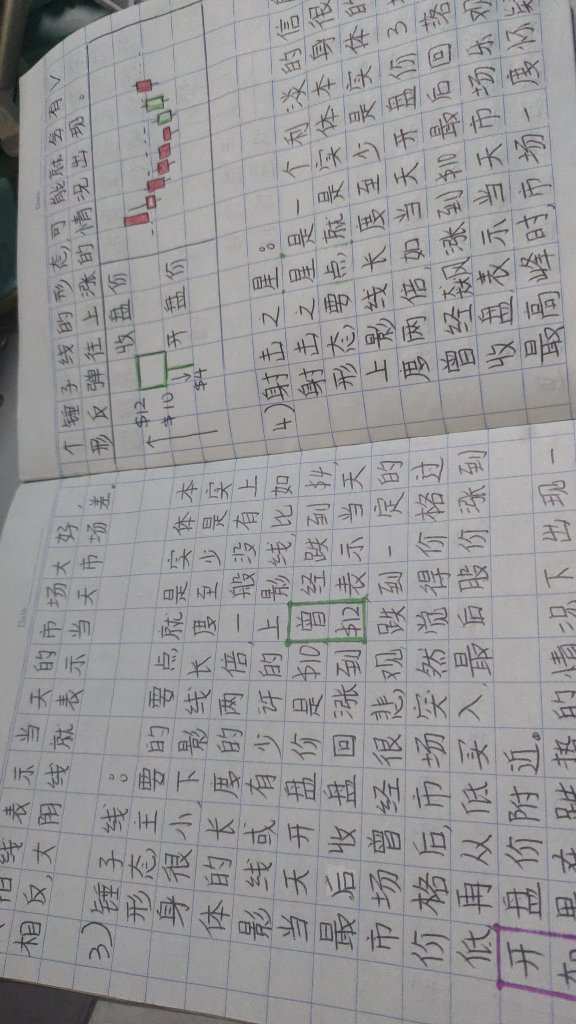 阳线表示当天的市场大好,
相反,大用线就表示当天市场差。
3)锤子线。
形态主要的要点,就是实体本
身很小,下影线长度至少是实
体的长度的两倍,一般没有上
影线或有少许的上影线,比如
当天开盘价是$10,曾经跌到$4,
最后收盘回涨到$12表示当天
市场曾经很悲观,跌到一定的
价格后,市场突然觉得价格过
低再从低买入,最后股价涨到
开盘价附近。
如果在跌势的情况下出现一
个锤子线的形态,可能就会有V
形反弹往上涨的情况出现。
$12 收盘价
$10 开盘价
$4
4)射击之星。
射击之星是一个利淡的信
形态要点,就是实体本身很
上影线长度至少是实体的
度两倍,如当天开盘价3
曾经飙涨到$10最后回落
收盘表示当天市场乐观
最高峰时,市场一度怀